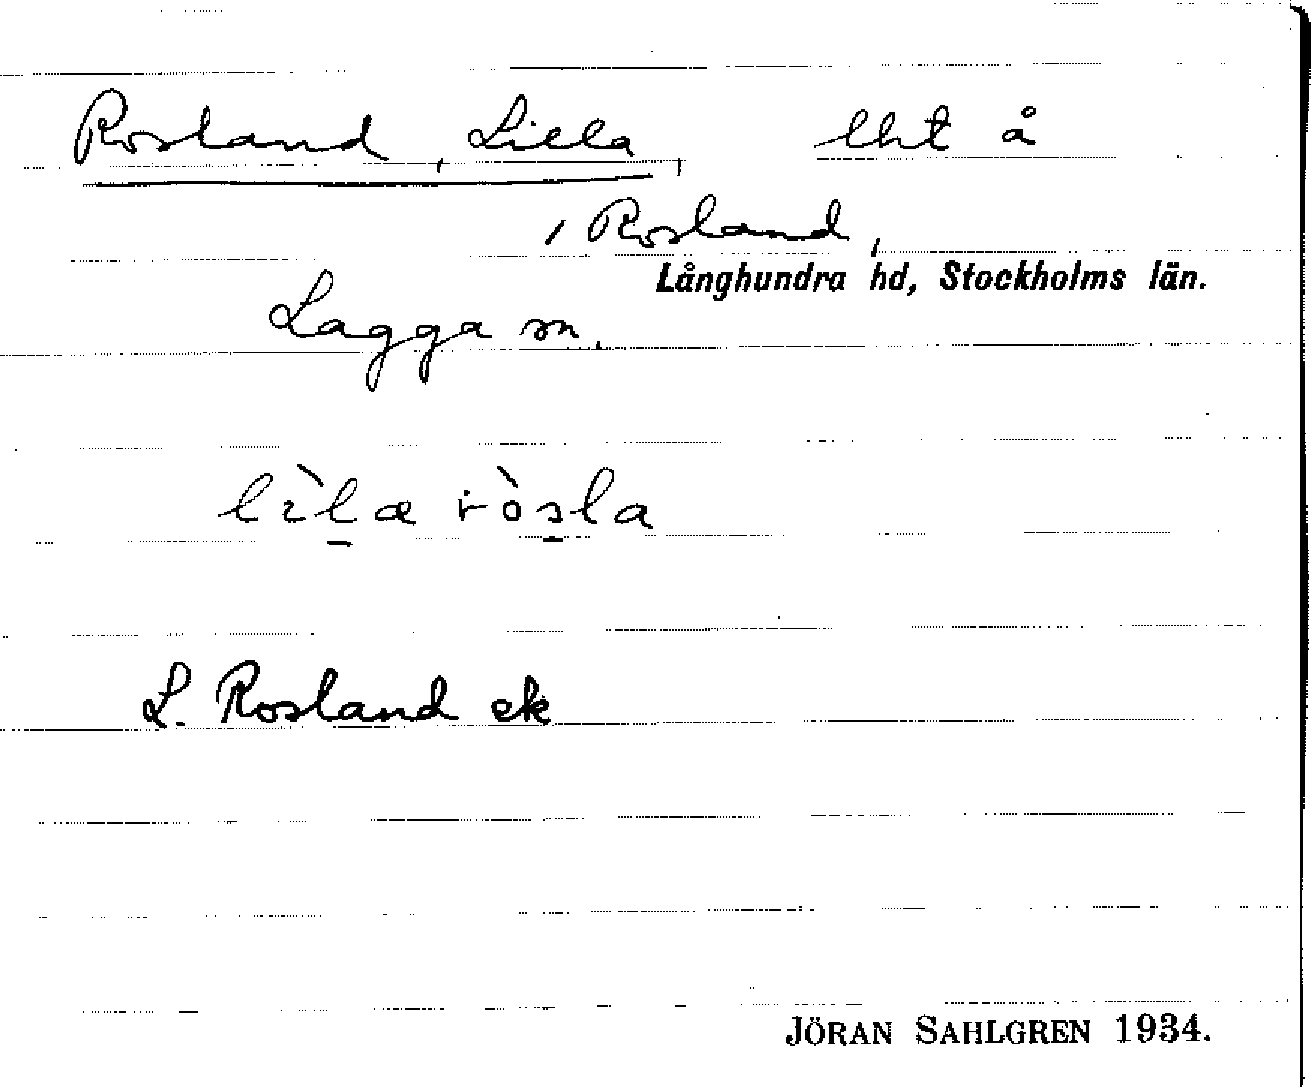 Rosland, Lilla, lht å
, Rosland,
Långhundra hd, Stockholms län.
Lagga sn.
lìla ròsla
L. Rosland ek
JÖRAN SAHLGREN 1934.